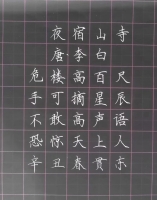 夜宿山寺
唐李白
危楼高百尺
手可摘星辰
不敢高声语
恐惊天上人
辛丑春贯东